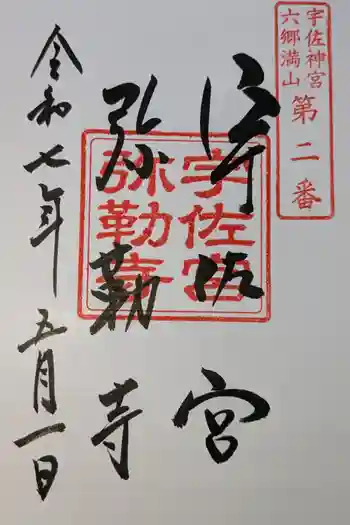 宇佐神宮
六郷満山
第二番
宇佐宮
弥勒寺
宇佐宮
弥勒寺
令和七年五月一日